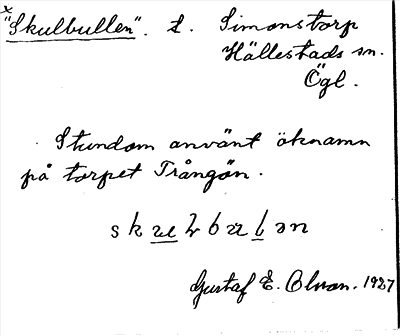 x
"Skulbullen". l. Simonstorp
Hällestads sn.
Ögl.
Stundom använt öknamn
på torpet Trångön.
Gustaf E. Olsson. 1927